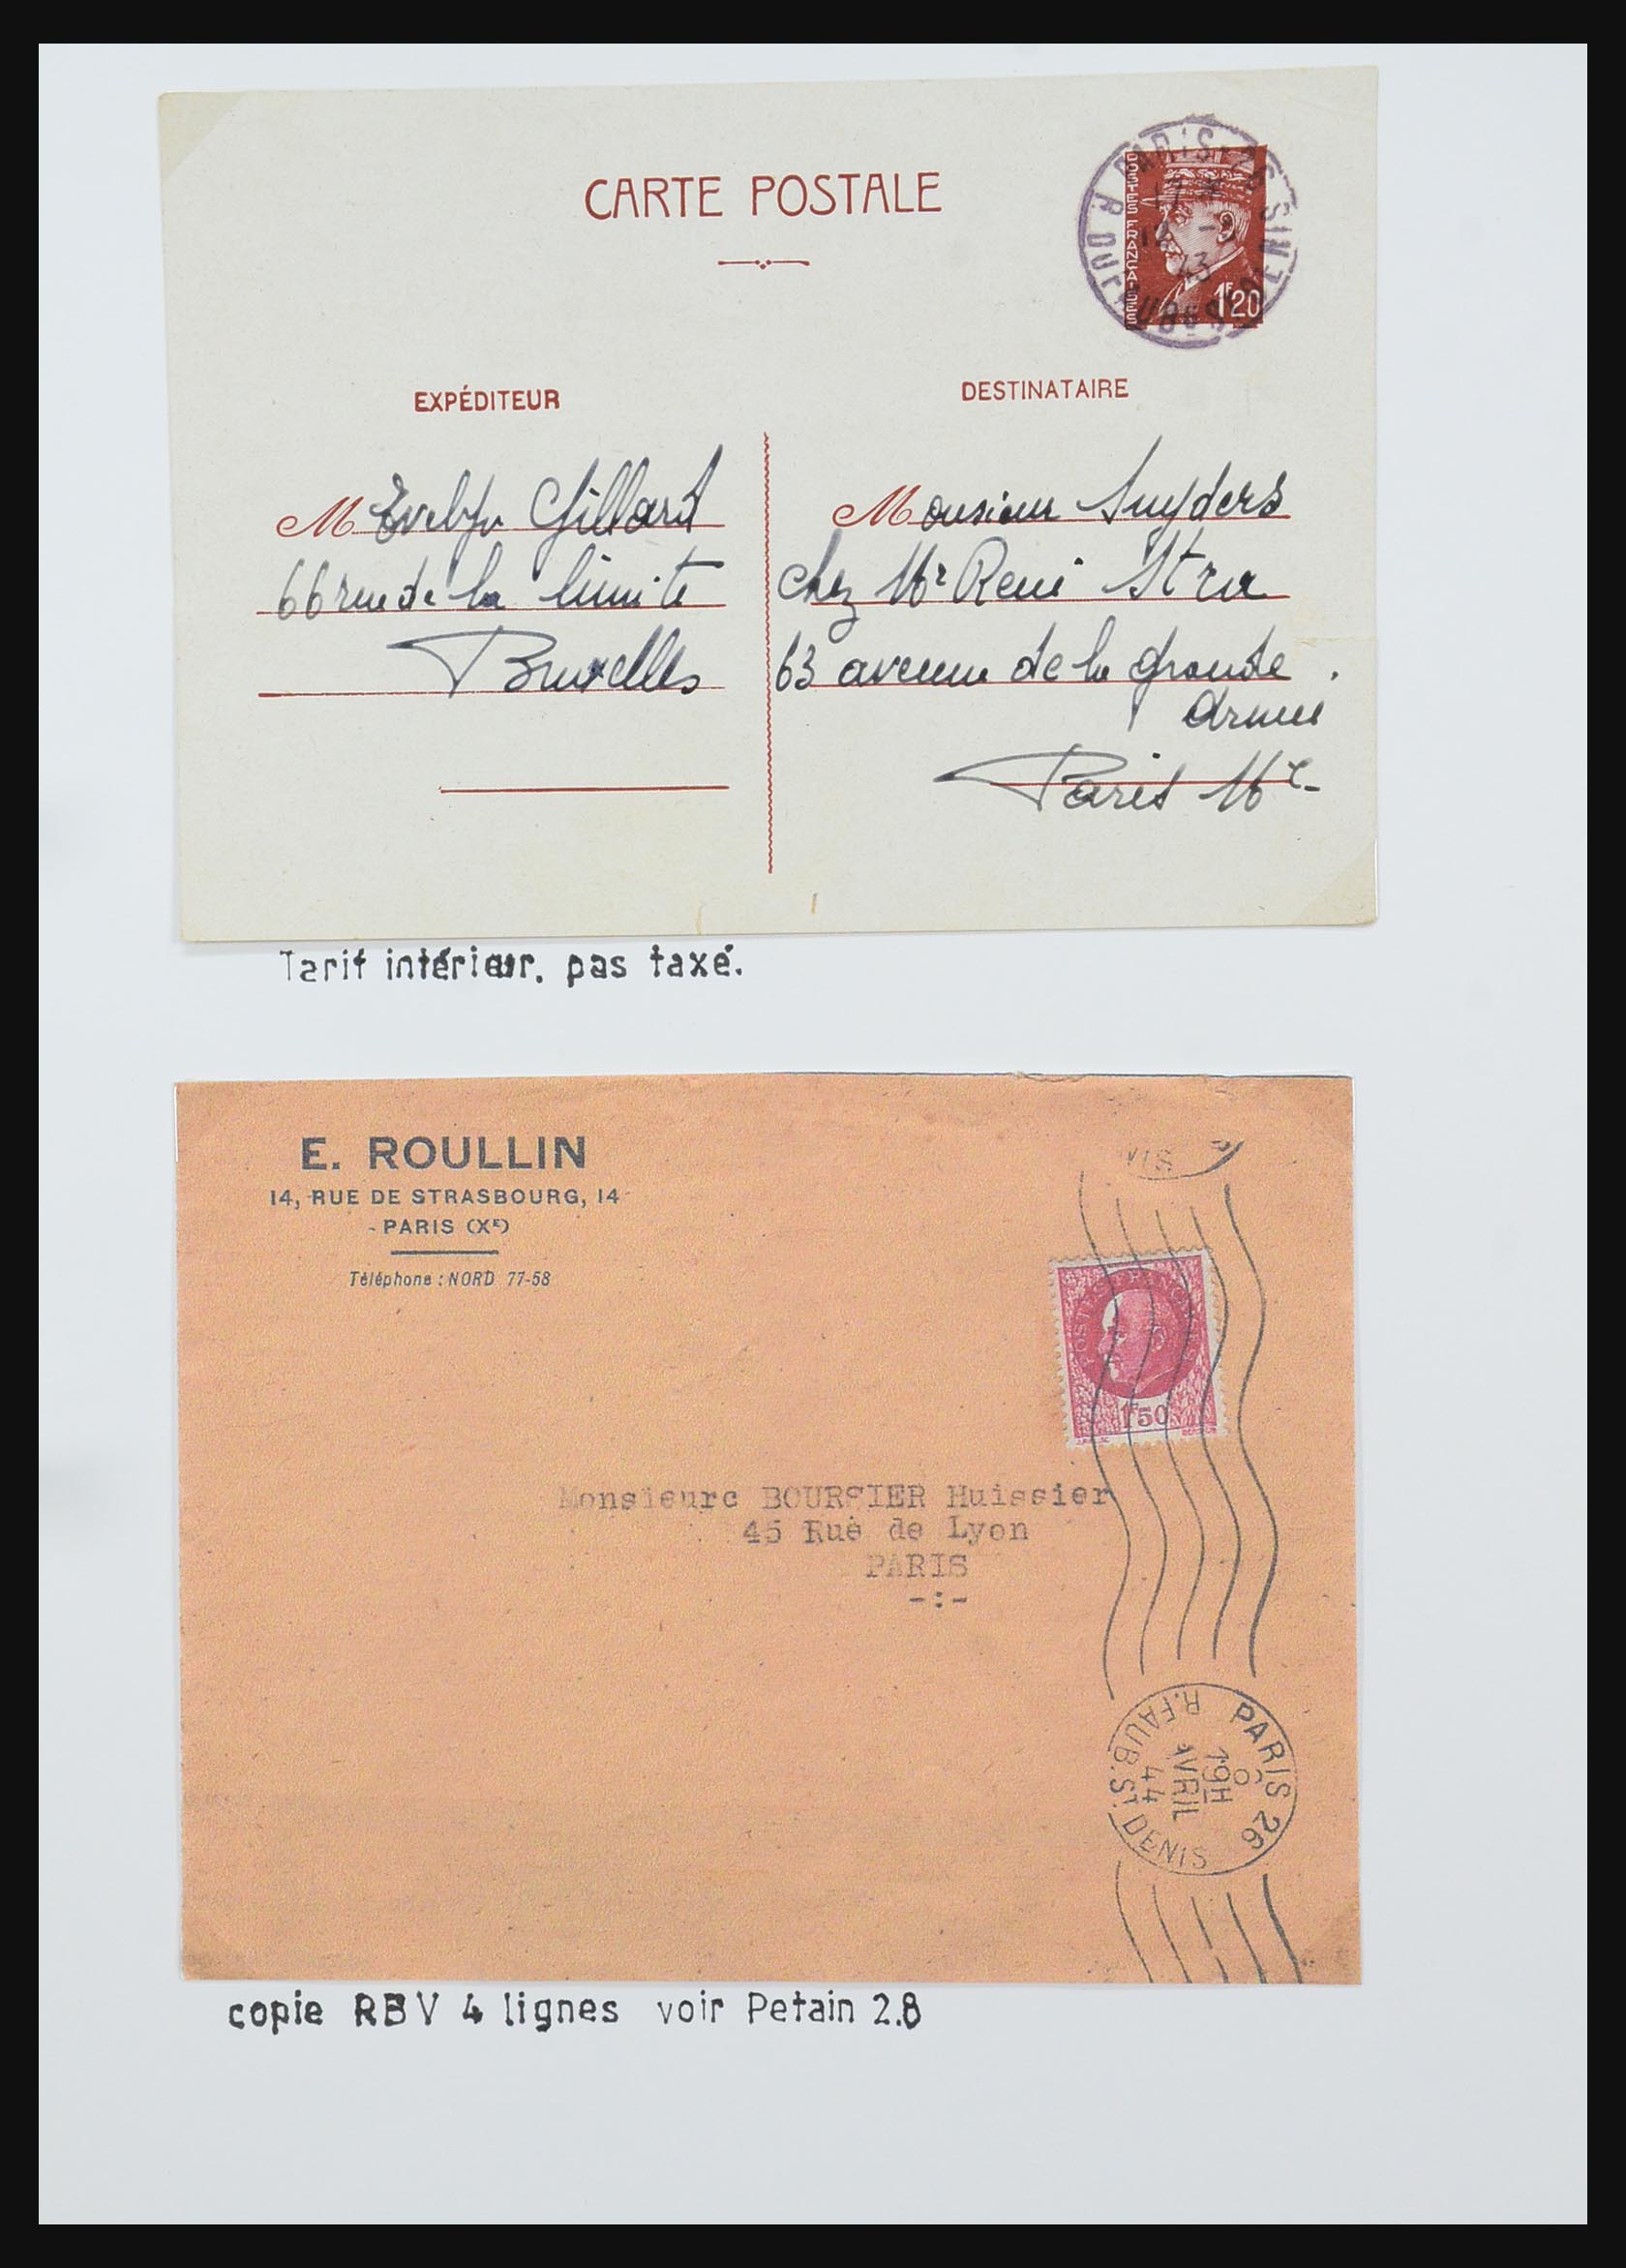 CARTE POSTALE
POSTES FRANÇAISES
1F20
PARIS
43
EXPÉDITEUR
DESTINATAIRE
M Evelyn Gillard
66 rue de la limite
Bruxelles
Monsieur Snyders
chez Mr René Stra
63 avenue de la grande
Armée
Paris 16e
Tarif intérieur. pas taxé.
E. ROULLIN
14, RUE DE STRASBOURG, 14
PARIS (XE)
Téléphone : NORD 77-58
1F50
Monsieurc BOURSIER Huissier
45 Rue de Lyon
PARIS
-:-
PARIS 26
R. FAUB. ST DENIS
19H
AVRIL
44
copie RBV 4 lignes voir Petain 2.8